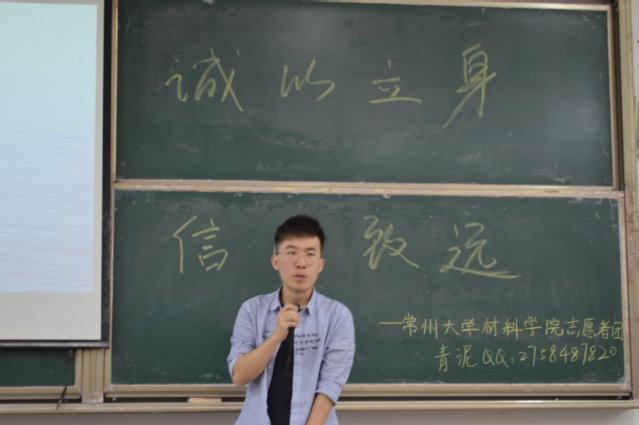 诚以立身
信 致远
—常州大学材料学院志愿者团
青泥QQ:2758487820